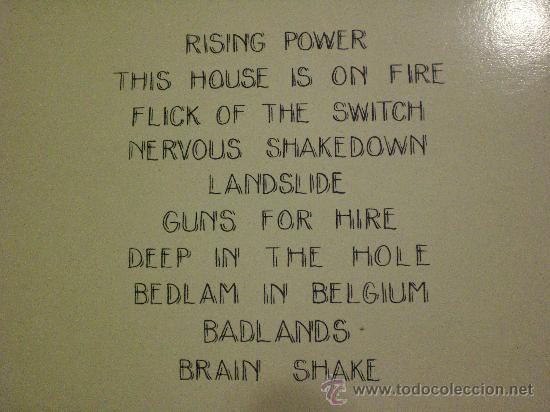 RISING POWER
THIS HOUSE IS ON FIRE
FLICK OF THE SWITCH
NERVOUS SHAKEDOWN
LANDSLIDE
GUNS FOR HIRE
DEEP IN THE HOLE
BEDLAM IN BELGIUM
BADLANDS
BRAIN SHAKE
www.todocoleccion.net